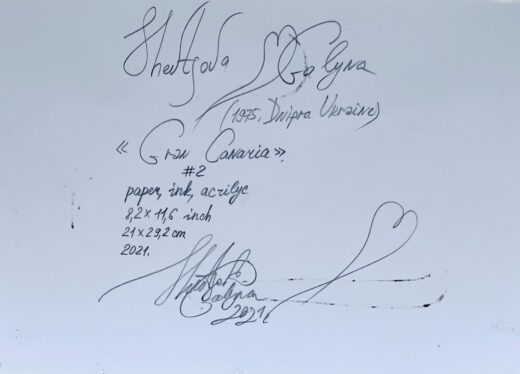 Galyna
(1975, Dnipro. Ukraine)
« Gran Canaria».
#2
paper, ink, acrilyc
8,2 x 11,6 inch
21 x 29,2 cm
2021.
Galyna
2021.